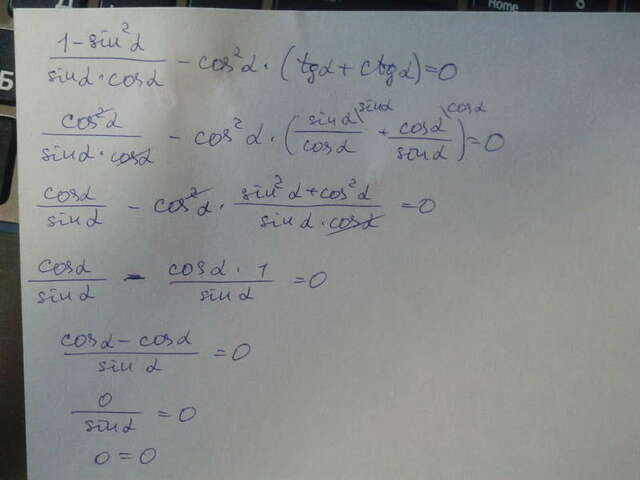 Home
Б
(1-sin²α)/(sinα·cosα) - cos²α·(tgα+ctgα)=0
cos²α/(sinα·cosα) - cos²α·(sinα/cosα \sinα + cosα/sinα \cosα)=0
cosα/sinα - cos²α·(sin²α+cos²α)/(sinα·cosα) =0
cosα/sinα - (cosα·1)/sinα =0
(cosα-cosα)/sinα =0
0/sinα =0
0=0